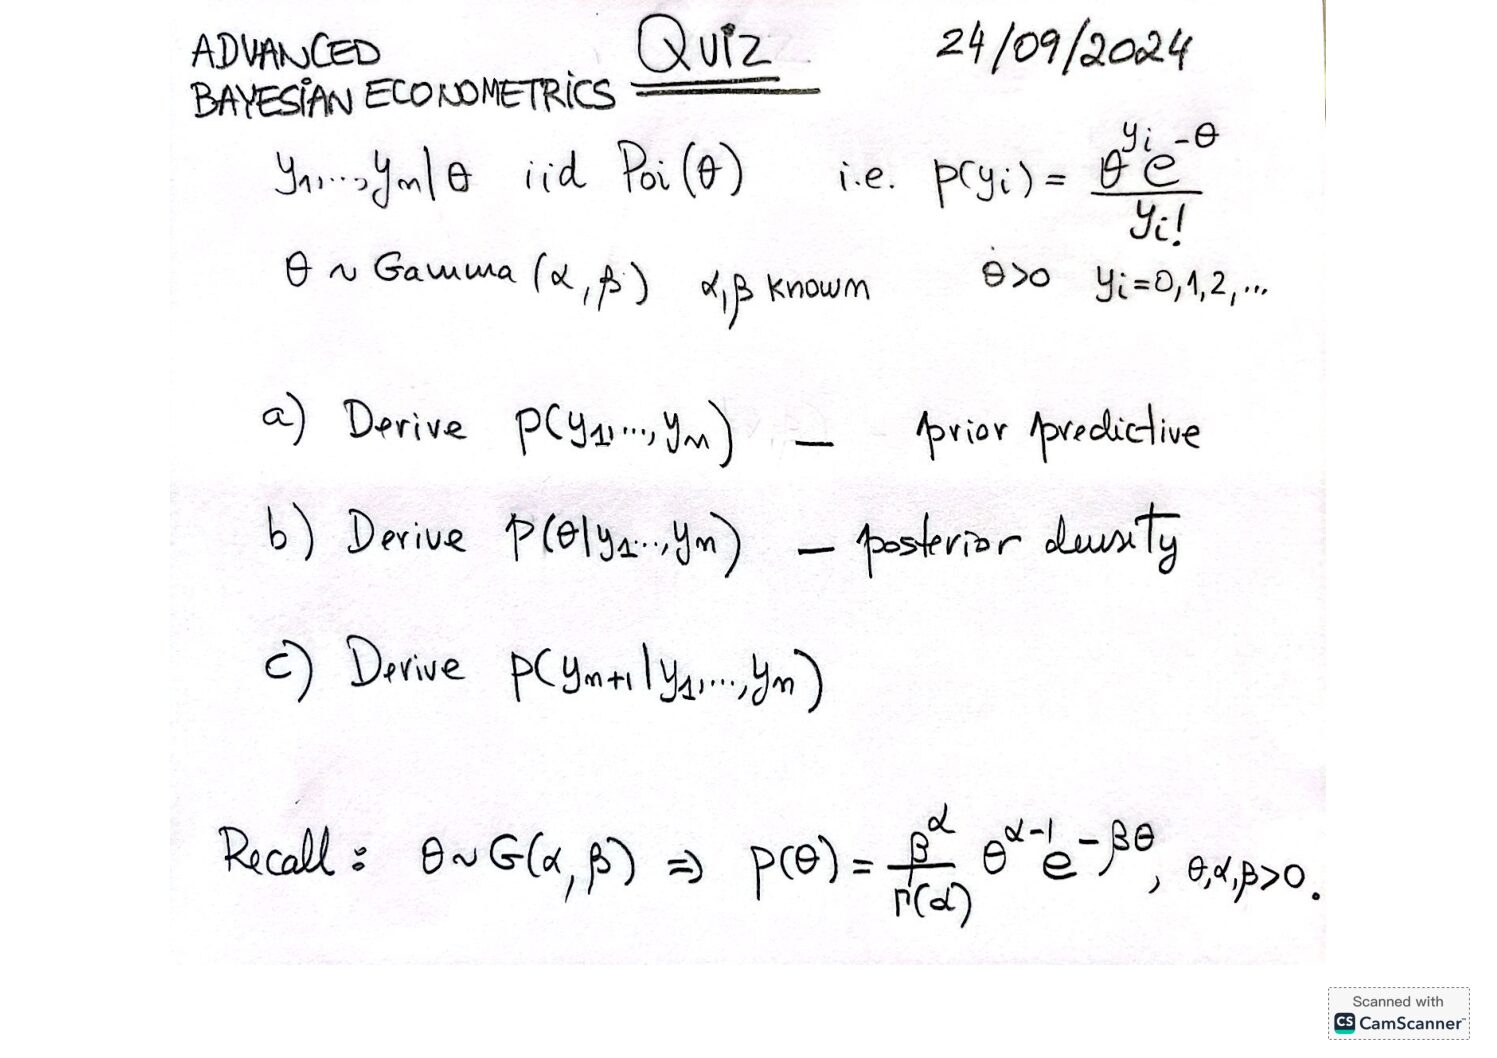 ADVANCED Quiz 24/09/2024
BAYESIAN ECONOMETRICS
y₁,...,yₙ|θ iid Poi(θ) i.e. p(yᵢ) = θ^{yᵢ} e^{-θ} / yᵢ!
θ ~ Gamma(α,β) α,β known θ>0 yᵢ=0,1,2,...
a) Derive p(y₁,...,yₙ) – prior predictive
b) Derive p(θ|y₁...,yₙ) – posterior density
c) Derive p(yₙ₊₁|y₁,...,yₙ)
Recall: θ~G(α,β) ⇒ p(θ) = β^α / Γ(α) θ^{α-1} e^{-βθ}, θ,α,β>0.
Scanned with
CS CamScanner